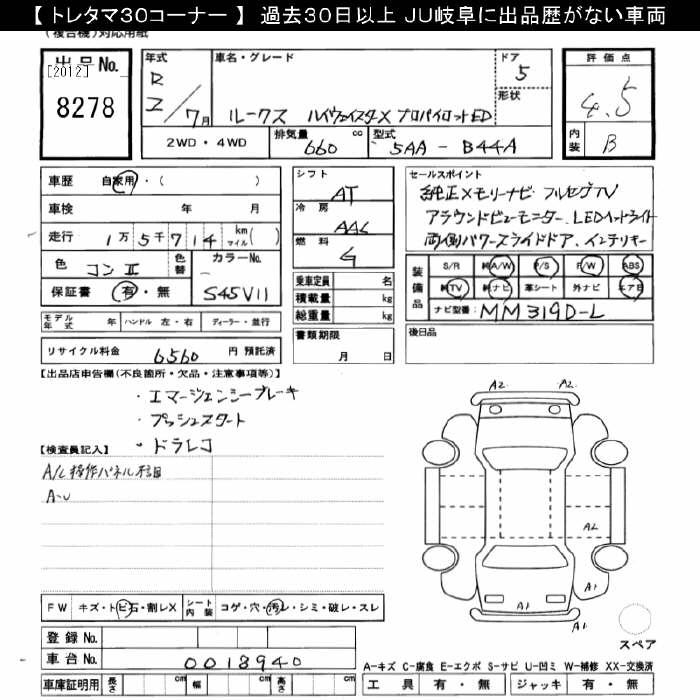 【 トレタマ30コーナー 】 過去30日以上 JU岐阜に出品歴がない車両
(複合機)対応用紙
出品No.
[2012]
8278
年式
R
2/7月
車名・グレード
ルークス ハイウェイスターX プロパイロットED
ドア
5
形状
評価点
4.5
内装
B
2WD・4WD
排気量
660
cc
型式
5AA - B44A
車歴
自家用・( )
車検 年 月
走行
1万5千714
km
マイル( )
色
コンII
色替
カラーNo.
S45V11
保証書
有・無
シフト
AT
冷房
AAC
燃料
G
乗車定員 名
積載量 kg
総重量 kg
書類期限
月 日
セールスポイント
純正メモリーナビ フルセグTV
アラウンドビューモニター、LEDヘッドライト
両側パワースライドドア、インテリキー
装備品
S/R
純A/W
P/S
P/W
ABS
純TV
純ナビ
革シート
外ナビ
エアB
ナビ型番
MM319D-L
後日品
モデル年式 年
ハンドル 左・右
ディーラー・並行
リサイクル料金
6560
円 預託済
【出品店申告欄(不良箇所・欠品・注意事項等)】
・エマージェンシーブレーキ
・プッシュスタート
・ドラレコ
【検査員記入】
A/C操作パネル
A-U
FW
キズ・トビ石・割レX
シート内装
コゲ・穴・汚レ・シミ・破レ・スレ
A2
A2
A2
A1
A1
A1
スペア
登録No.
車台No.
0018940
車庫証明用
長さ
cm
幅
cm
高さ
cm
A-キズ C-腐食 E-エクボ S-サビ U-凹ミ W-補修 XX-交換済
工具
有・無
ジャッキ
有・無